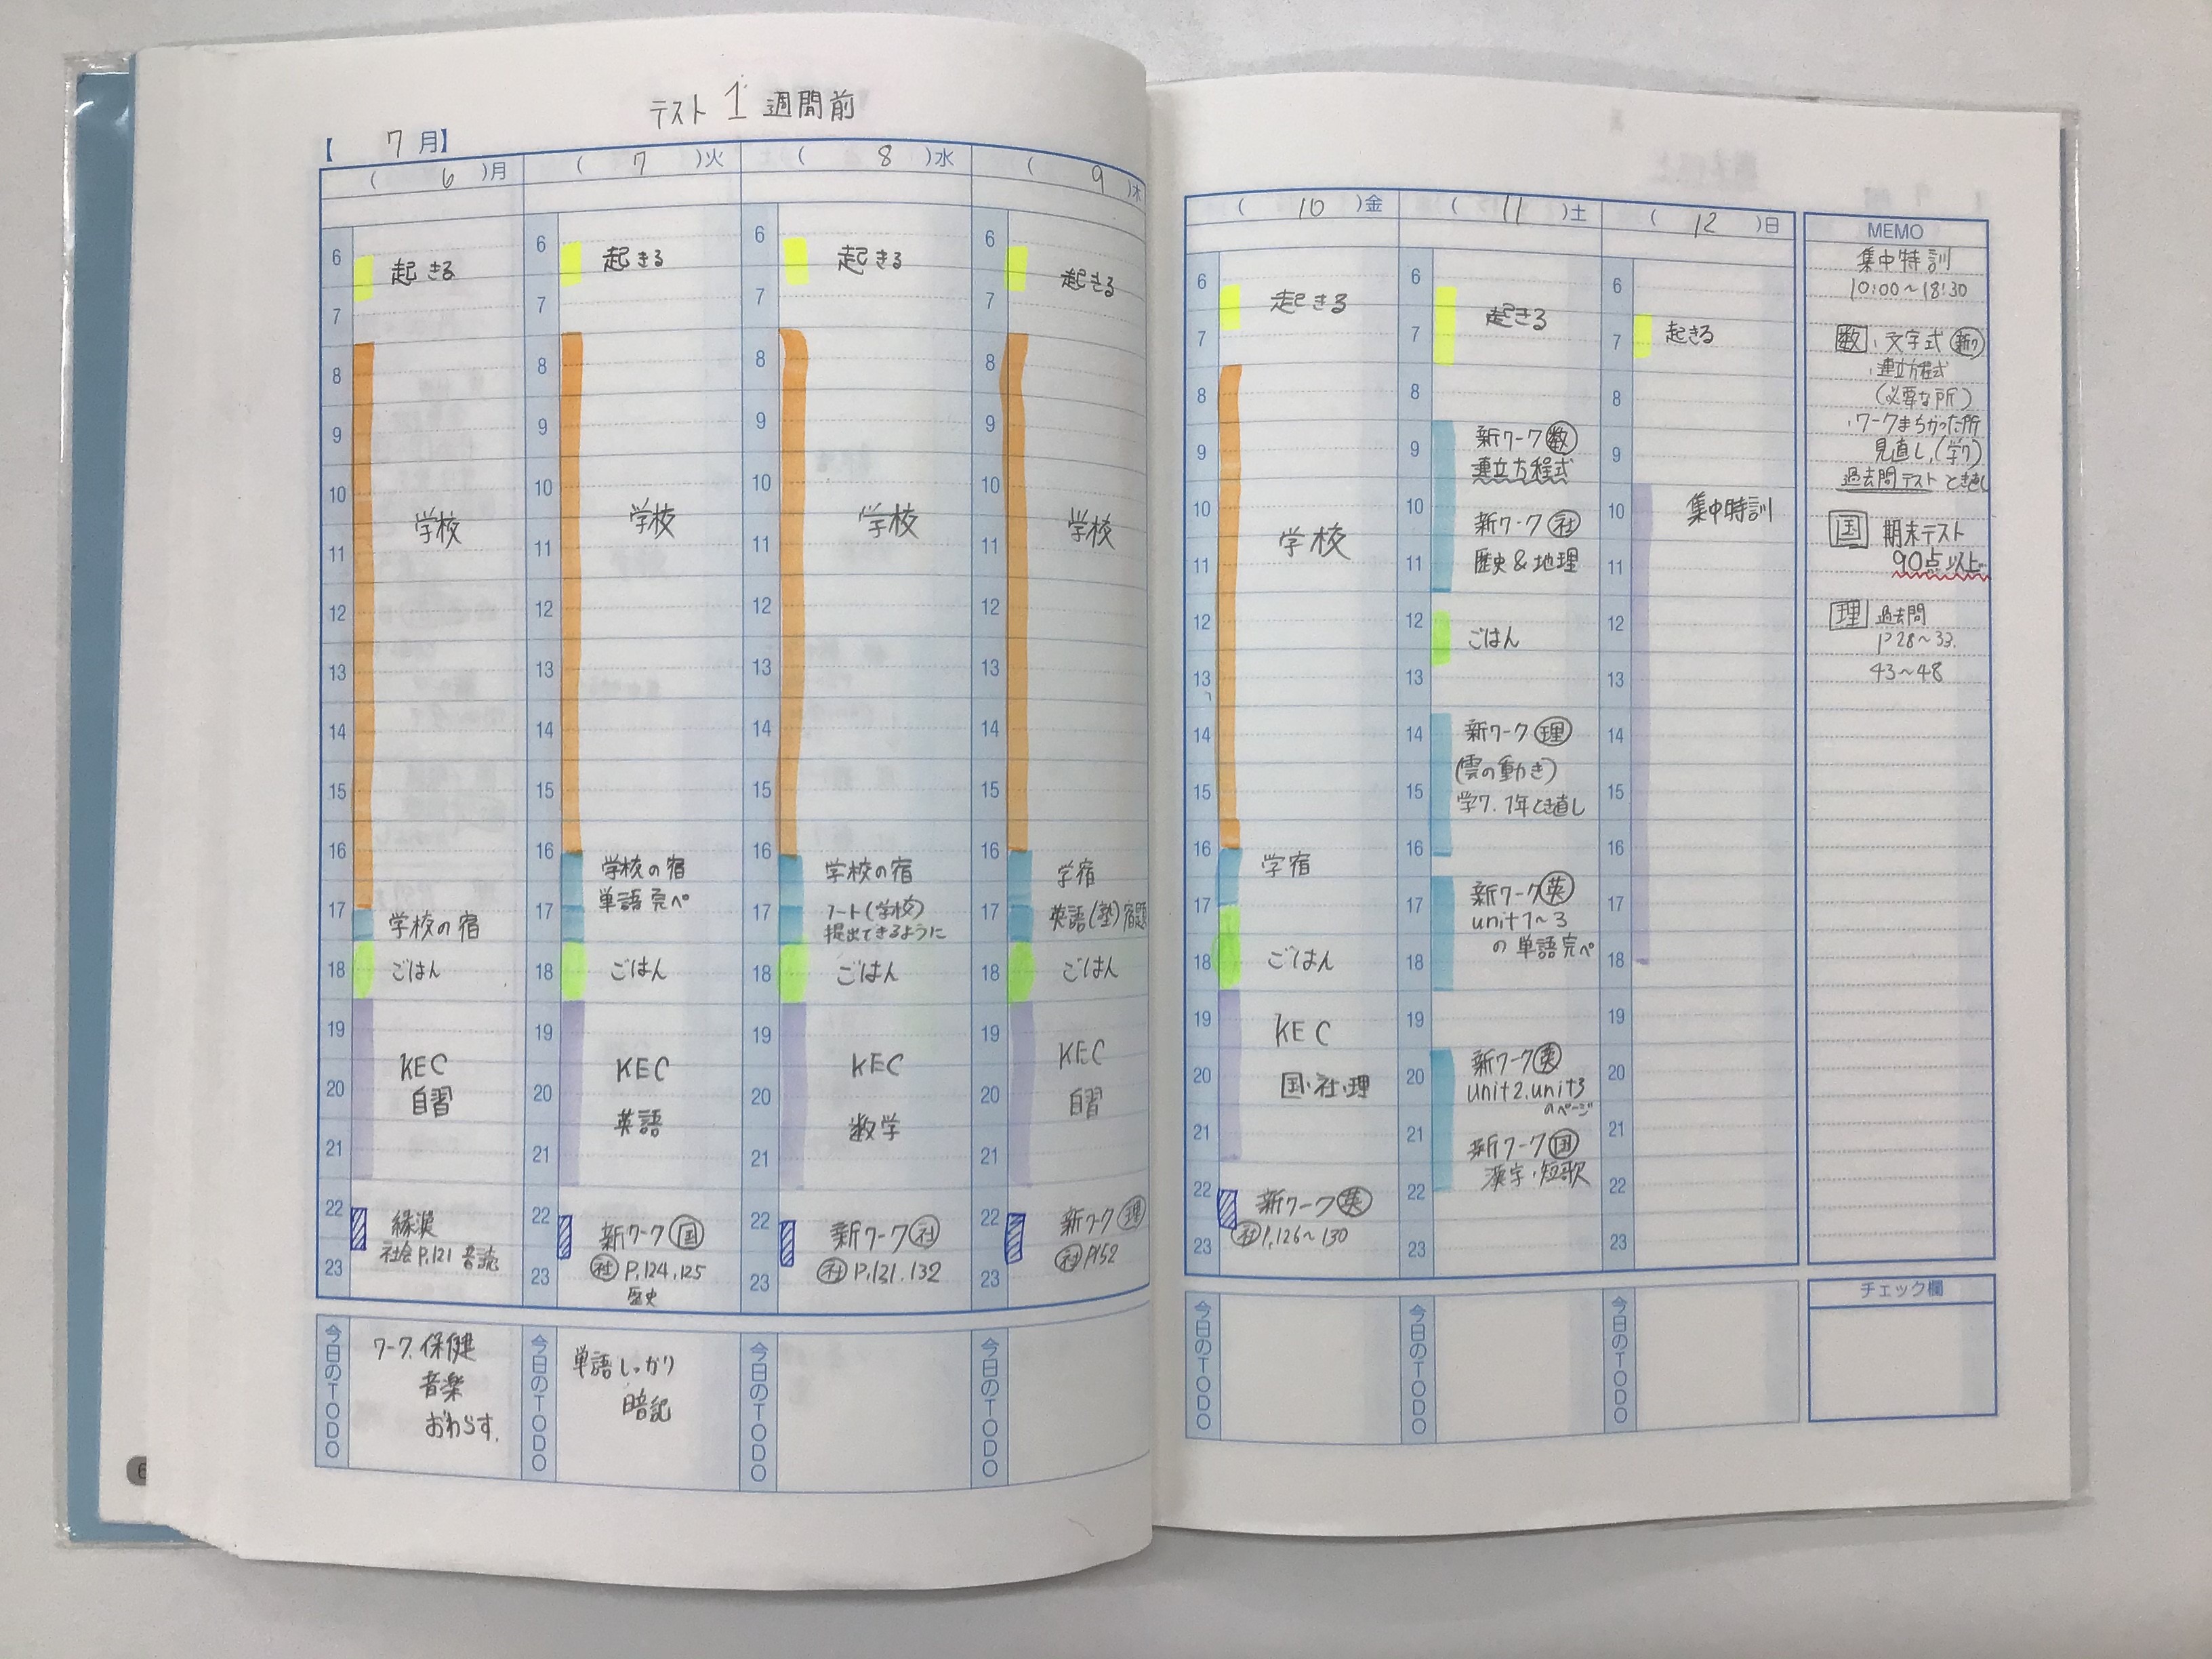 テスト 1 週間前
【 7 月】
( 6 )月
6
起きる
7
8
9
10
学校
11
12
13
14
15
16
17
学校の宿
18
ごはん
19
KEC
20
自習
21
22
社会 P.121 音読
23
今日のTODO
ワーク.保健
音楽
おわらす.
( 7 )火
6
起きる
7
8
9
10
学校
11
12
13
14
15
16
学校の宿
単語完ペ
17
18
ごはん
19
KEC
20
英語
21
22
新ワーク 国
社 P.124.125
歴史
23
今日のTODO
単語しっかり
暗記
( 8 )水
6
起きる
7
8
9
10
学校
11
12
13
14
15
16
学校の宿
17
ノート(学校)
提出できるように
18
ごはん
19
KEC
20
数学
21
22
新ワーク 社
社 P.131.132
23
今日のTODO
( 9 )木
6
起きる
7
8
9
10
学校
11
12
13
14
15
16
学宿
17
英語(塾)宿題
18
ごはん
19
KEC
20
自習
21
22
新ワーク 理
社 P152
23
今日のTODO
( 10 )金
6
起きる
7
8
9
10
学校
11
12
13
14
15
16
学宿
17
18
ごはん
19
KEC
20
国・社・理
21
22
新ワーク 英
社 P.126~130
23
今日のTODO
( 11 )土
6
起きる
7
8
9
新ワーク 数
連立方程式
10
新ワーク 社
11
歴史&地理
12
ごはん
13
14
新ワーク 理
(雲の動き)
15
学ワ.1年とき直し
16
17
新ワーク 英
unit1~3
の 単語完ペ
18
19
20
新ワーク 英
unit2.unit3
のページ
21
新ワーク 国
漢字・短歌
22
23
今日のTODO
( 12 )日
6
7
起きる
8
9
10
集中特訓
11
12
13
14
15
16
17
18
19
20
21
22
23
今日のTODO
MEMO
集中特訓
10:00~18:30
数・文字式 新ワ
・連立方程式
(必要な所)
・ワークまちがった所
見直し,(学ワ)
過去問テスト とき直し
国 期末テスト
90点以上
理 過去問
P28~33.
43~48
チェック欄